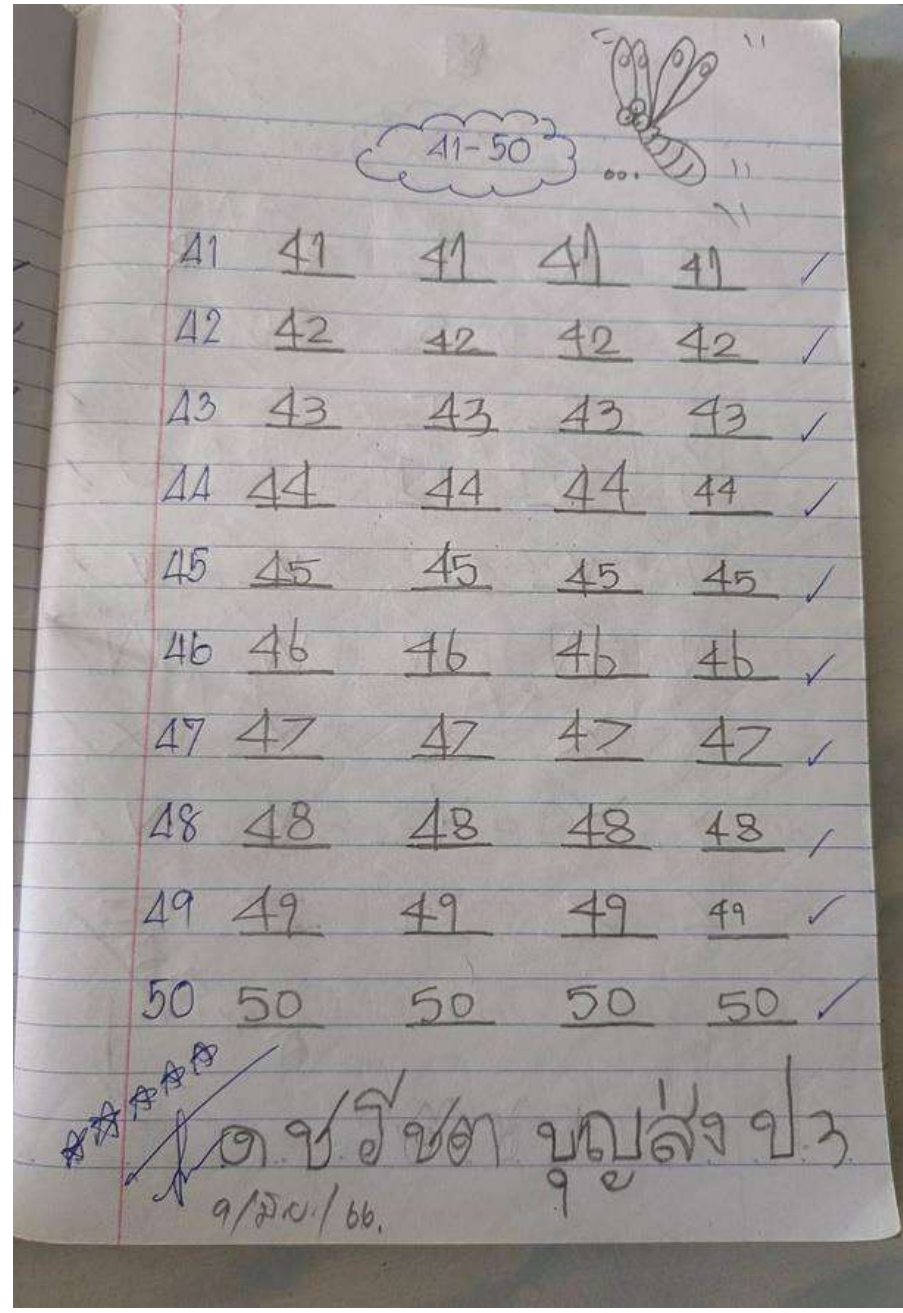 41-50
41 41 41 41 41
42 42 42 42 42
43 43 43 43 43
44 44 44 44 44
45 45 45 45 45
46 46 46 46 46
47 47 47 47 47
48 48 48 48 48
49 49 49 49 49
50 50 50 50 50
ด.ช.รัชต บุญส่ง ป.3
9/มิ.ย./66.